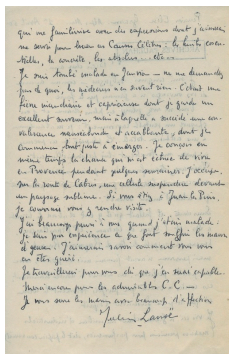 qui me familiarise avec des expressions dont j'aimerais
me servir pour les Causes Célèbres : la huit
le concrète, les absolus... etc...
Je suis tombé malade en Janvier — ne me demandez
pas de quoi, les médecins n'en savent rien. C'était une
fièvre et capricieuse dont je garde un
excellent souvenir, mais à laquelle a succédé une con-
valescence et accablante, dont je
commence tout juste à émerger. Je conçois en
même temps la chance qui m'est échue de vivre
en Provence pendant quelques semaines. J'occupe
sur la route de Cabris, une cellule suspendue devant
un paysage sublime. Si vous étiez à Juan les Pins,
je courrais vous y rendre visite.
J'ai beaucoup pensé à vous quand j'étais malade.
Je sais par expérience ce que font souffrir les maux
de J'aimerais savoir comment vous vous
en êtes guéri.
Je travaillerai pour vous dès que j'en serai capable.
Merci encore pour les admirables C.C. —
Je vous serre les mains avec beaucoup d'affection
Julien Lanoë